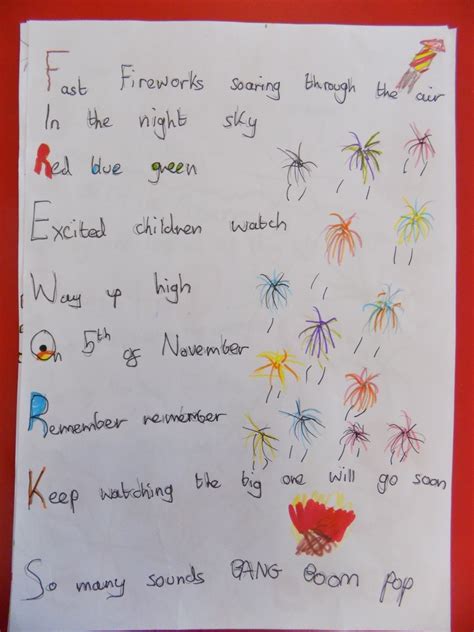 Fast Fireworks soaring through the air
In the night sky
Red blue green
Excited children watch
Way up high
On 5th of November
Remember remember
Keep watching the big one will go soon
So many sounds BANG Boom Pop